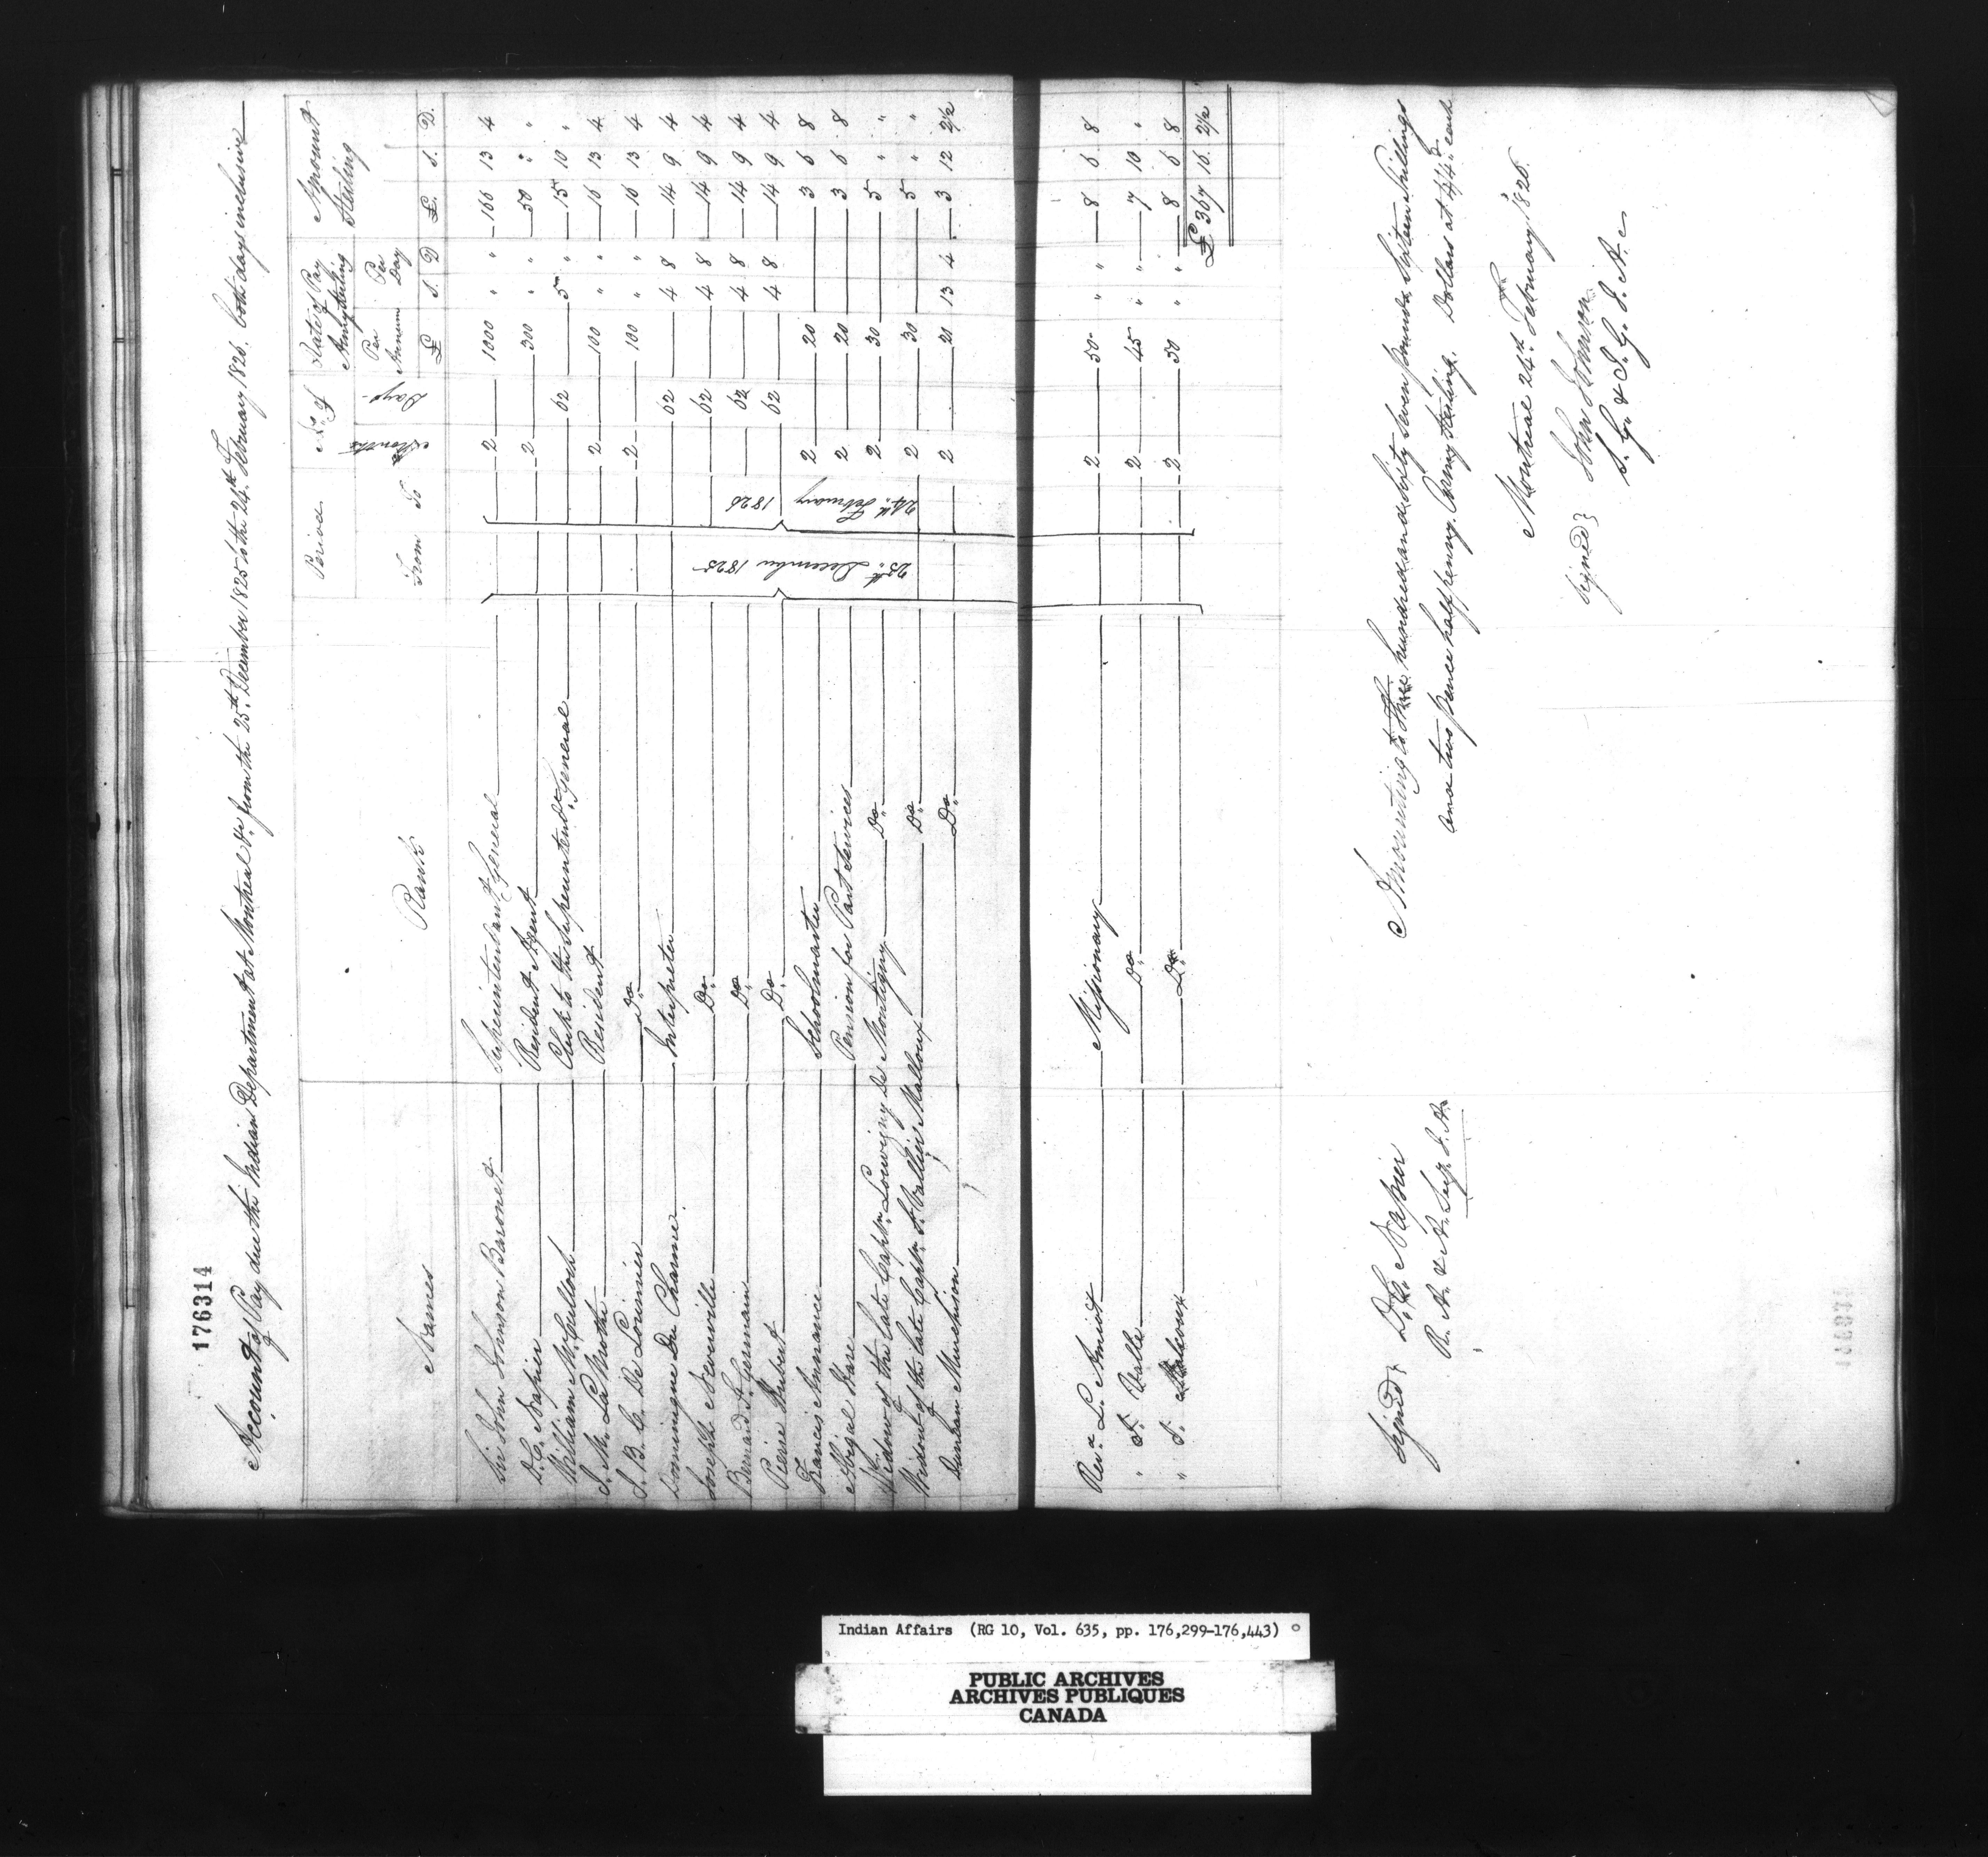 176314
Account of Pay due the Indian Department at Montreal &c. from the 25th December 1825 to the 24th February 1826. both days inclusive
Names Rank Period No. of Rate of Pay Army Sterling Amount Sterling
From To Months Days Per Annum Per Day
£ S. D £. S. D.
Sir John Johnson Baronet Superintendant General 2 1000 " " 166 13 4
D.C. Napier Resident & Agent 2 300 " " 50 " "
William McCulloch Clerk to the Superintendt. General 62 5 " 15 10 "
J. M. La Mothe Resident 2 100 " " 16 13 4
J. B. C. De Lorimier Do. 2 100 " " 16 13 4
Dominique Du Charme Interpreter 62 4 8 14 9 4
Joseph Neuville Do. 62 4 8 14 9 4
Bernard St. Germain Do. 62 4 8 14 9 4
Pierre Do. 62 4 8 14 9 4
Francis Annance Schoolmaster 2 20 3 6 8
Abigal Hare Pension for Past Services 2 20 3 6 8
Widow of the late Captn. Louvigny De Montigny Do. 2 30 5 " "
Widow of the late Captn. St. Vallier Mailloux Do. 2 30 5 " "
Duncan Murchison Do. 2 20 13 4 3 12 2½
25th December 1825
24th February 1826
Revd. L. Amiot Missionary 2 50 " " 8 6 8
" F. Valle Do. 2 45 " " 7 10 "
" J. Marcoux Do. 2 50 " " 8 6 8
£ 367 16 2½
Amounting to three hundred and sixty seven pounds, sixteen shillings
and two pence half penny, Army sterling. Dollars at 4/4 each
Montreal 24th February 1826.
Signed } D.C. Napier
R. A. & A. Secy. I. A.
Signed } John Johnson
S. G. & I. G. I. A.
Indian Affairs (RG 10, Vol. 635, pp. 176,299-176,443)
PUBLIC ARCHIVES
ARCHIVES PUBLIQUES
CANADA